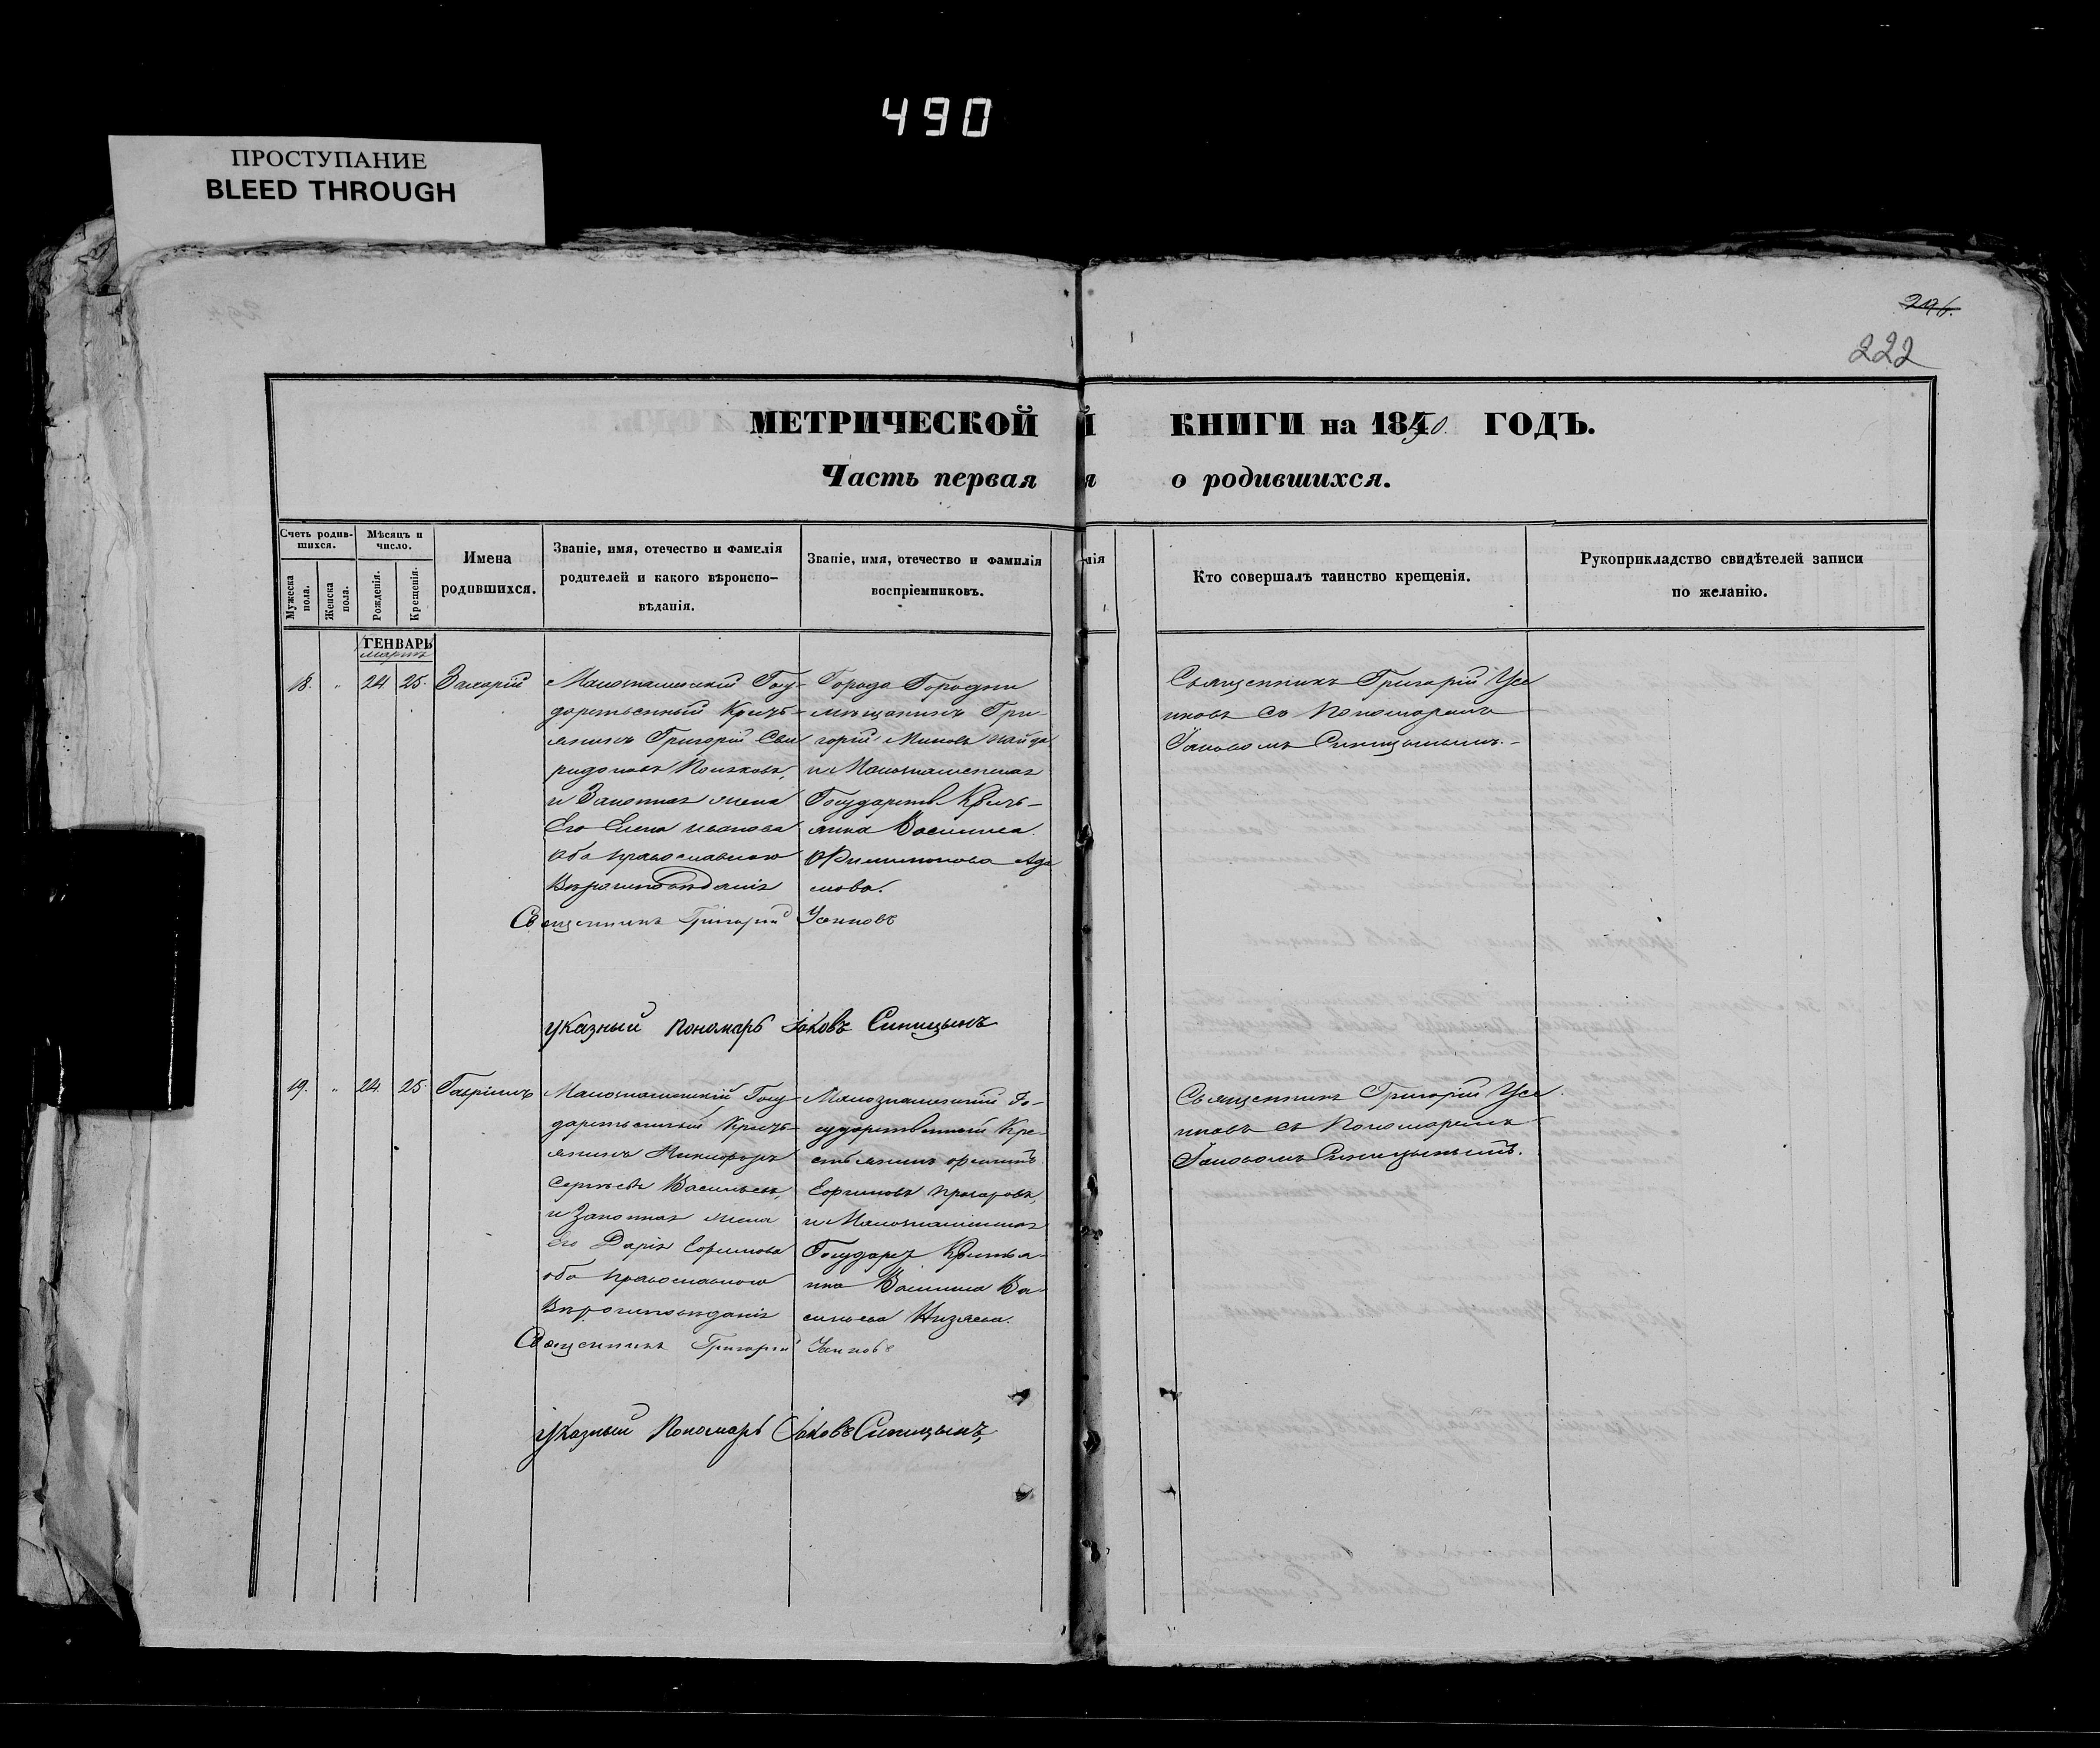 490
ПРОСТУПАНИЕ
BLEED THROUGH
296.
222
МЕТРИЧЕСКОЙ КНИГИ на 1850. ГОДЪ.
Часть первая о родившихся.
Счетъ родив-
шихся.
Мужеска пола.
Женска пола.
Мѣсяцъ и
число.
Рожденія.
Крещенія.
Имена
родившихся.
Званіе, имя, отечество и фамилія
родителей и какого вѣроиспо-
вѣданія.
Званіе, имя, отечество и фамилія
воспріемниковъ.
Кто совершалъ таинство крещенія.
Рукоприкладство свидѣтелей записи
по желанію.
ГЕНВАРЬ
мартъ
18. " 24 25. Захарій
Малознаменскій Госу-
дарственный Кресть-
янинъ Григорій Спи
ридоновъ
и Законная жена
Его Елена Иванова
оба православнаго
Вѣроисповѣданія
Города Городни
мѣщанинъ Гри-
горій
и Малознаменская
Государств. Кресть-
янка Василиса
Филимонова Ада
мова.
Священникъ Григорій Усиковъ
Священникъ Григорій Уси
иковъ съ Пономаремъ
Іаковомъ Синицынымъ.-
указный пономарь Іаковъ Синицынъ
19. " 24. 25. Гавріилъ
Малознаменскій Госу-
дарственный Кресть-
янинъ Никифоръ
Сергѣевъ Васильевъ,
и Законная жена
Его Дарія Ефимова
оба православнаго
Вѣроисповѣданія
Малознаменскій Го-
сударственный Кре-
стьянинъ
Ефимовъ
и Малознаменская
Государ. Крестья-
нка Василиса Ва-
сильева
Священникъ Григорій Усиковъ
Священникъ Григорій Уси
иковъ съ Пономаремъ
Іаковомъ Синицынымъ.
указный Пономарь Іаковъ Синицынъ,